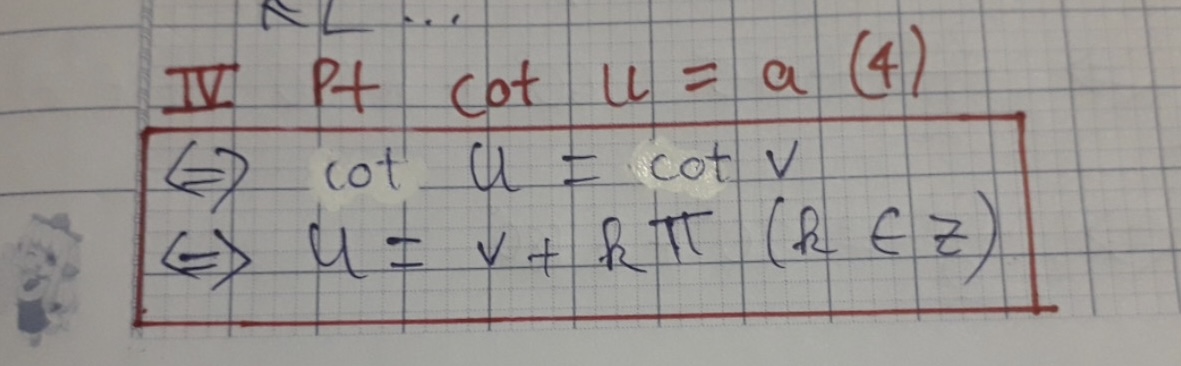 IV Pt cot u = a (4)
⇔ cot u = cot v
⇔ u = v + kπ (k ∈ z)